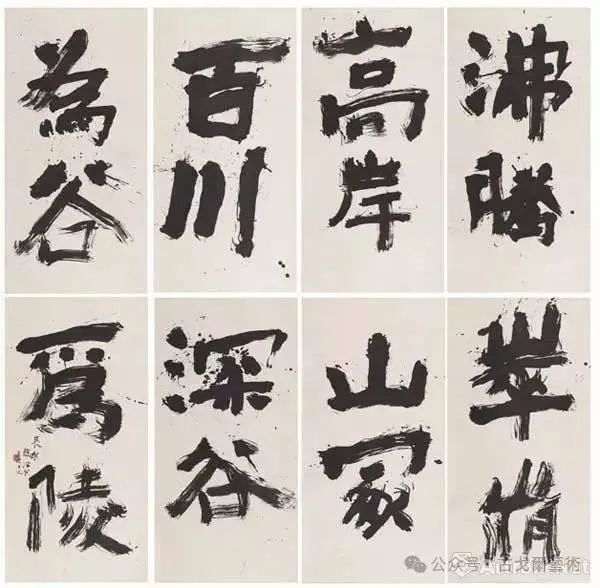 沸騰
高岸
百川
為谷
崒崩
山冢
深谷
爲陵
公众号 · 古戈尔藝術